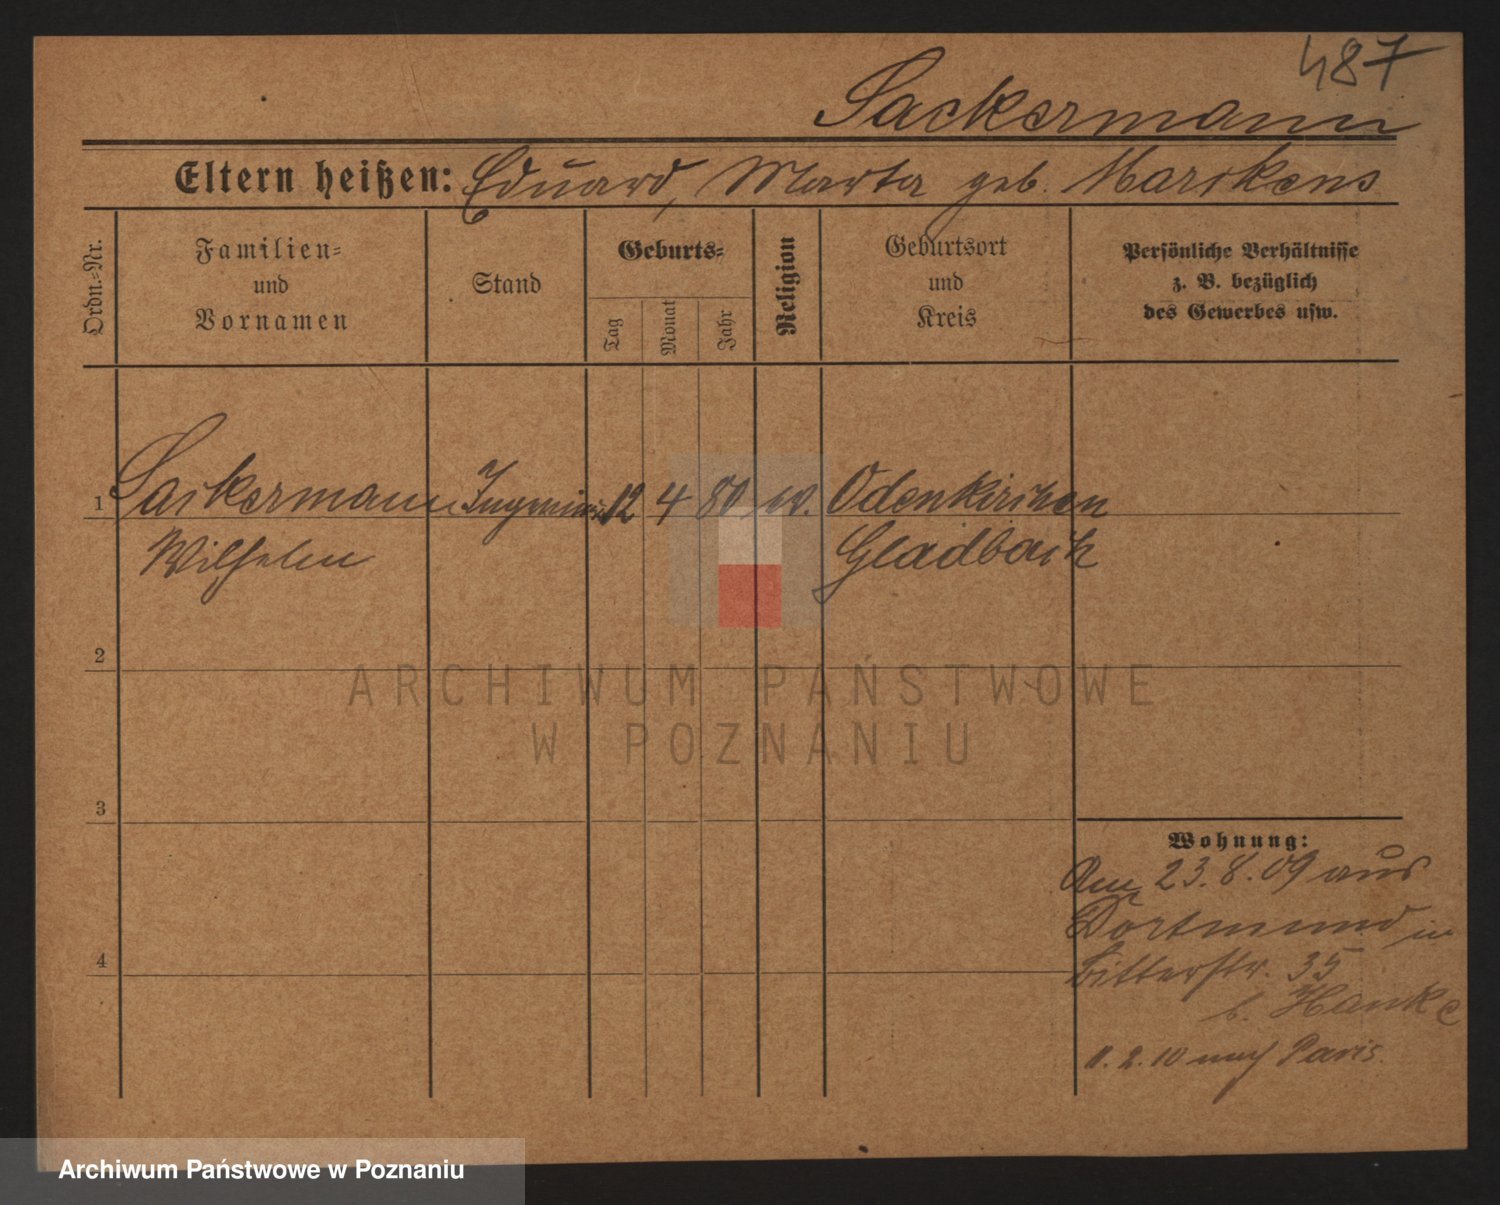 487
Sackermann
Eltern heißen: Eduard, Marta geb. Marckens
Ordn.=Nr.
Familien=
und
Vornamen
Stand
Geburts=
Tag
Monat
Jahr
Religion
Geburtsort
und
Kreis
Persönliche Verhältnisse
z. B. bezüglich
des Gewerbes usw.
1
Sackermann Ingenieur 12 4 80 Odenkirchen
Wilhelm Gladbach
2
ARCHIWUM PAŃSTWOWE
W POZNANIU
3
Wohnung:
Am 23.8.09 aus
Dortmund in
Bitterstr. 35
b. Hanke
4
11.2.10 nach Paris.
Archiwum Państwowe w Poznaniu